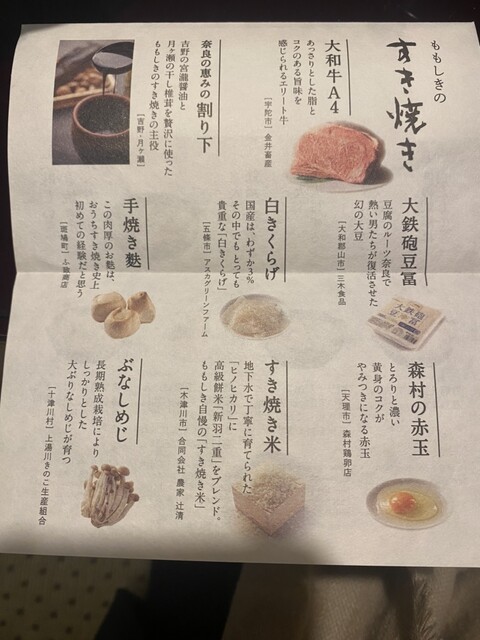 ももしきの
すき焼き
大和牛A4
あっさりとした脂と
コクのある旨味を
感じられるエリート牛
[宇陀市] 金井畜産
奈良の恵みの 割り下
吉野の宮瀧醤油と
月ヶ瀬の干し椎茸を贅沢に使った
ももしきのすき焼きの主役
[吉野・月ヶ瀬]
大鉄砲豆冨
豆腐のルーツ奈良で
熱い男たちが復活させた
幻の大豆
[大和郡山市] 三木食品
大鉄砲
豆冨
白きくらげ
国産は、わずか3%
その中でもとっても
貴重な「白きくらげ」
[五條市] アスカグリーンファーム
手焼き麩
この肉厚のお麩は、
おうちすき焼き史上
初めての経験だと思う
[斑鳩町]
森村の赤玉
とろりと濃い
黄身のコクが
やみつきになる赤玉
[天理市] 森村鶏卵店
すき焼き米
地下水で丁寧に育てられた
「ヒノヒカリ」に
高級餅米「新羽二重」をブレンド。
ももしき自慢の「すき焼き米」
[木津川市] 合同会社 農家 辻清
ぶなしめじ
長期熟成栽培により
しっかりとした
大ぶりなしめじが育つ
[十津川村] 上湯川きのこ生産組合